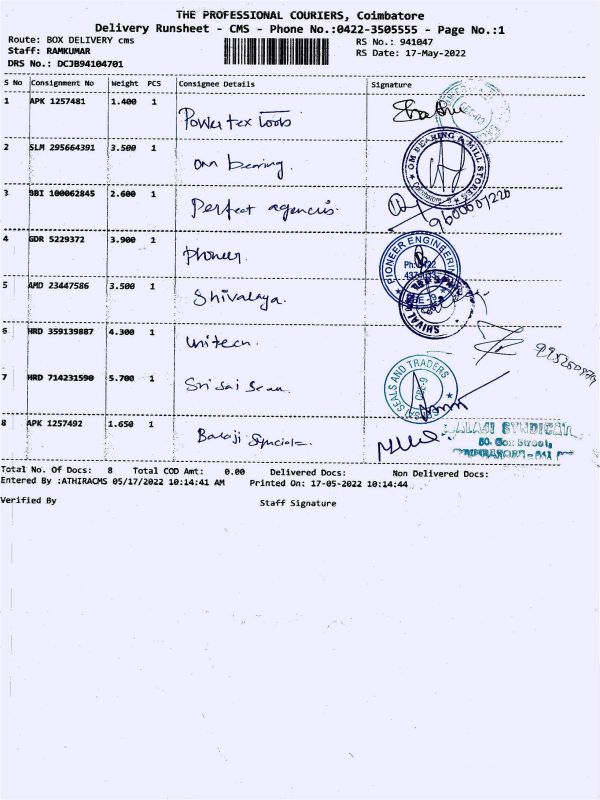 THE PROFESSIONAL COURIERS, Coimbatore
Delivery Runsheet - CMS - Phone No.:0422-3505555 - Page No.:1
Route: BOX DELIVERY cms RS No.: 941047
Staff: RAMKUMAR RS Date: 17-May-2022
DRS No.: DCJB94104701
S No Consignment No Weight PCS Consignee Details Signature
1 APK 1257481 1.400 1 Powertex Tools
2 SLM 295664391 3.500 1 om bearing. OM BEARING & MILL STORES
3 BBI 100062845 2.600 1 Perfect agencies. 9600607220
4 GDR 5229372 3.900 1 Pioneer. PIONEER ENGINEERING
Ph: 0422
5 AMD 23447586 3.500 1 Shivalaya.
6 HRD 359139887 4.300 1 unitech.
7 HRD 714231590 5.700 1 Sri Sai Sean SEALS AND TRADERS CBE-9
8 APK 1257492 1.650 1 Balaji ALAJI SYNDICAT
50, Sox Street,
Total No. Of Docs: 8 Total COD Amt: 0.00 Delivered Docs: Non Delivered Docs:
Entered By :ATHIRACMS 05/17/2022 10:14:41 AM Printed On: 17-05-2022 10:14:44
Verified By Staff Signature